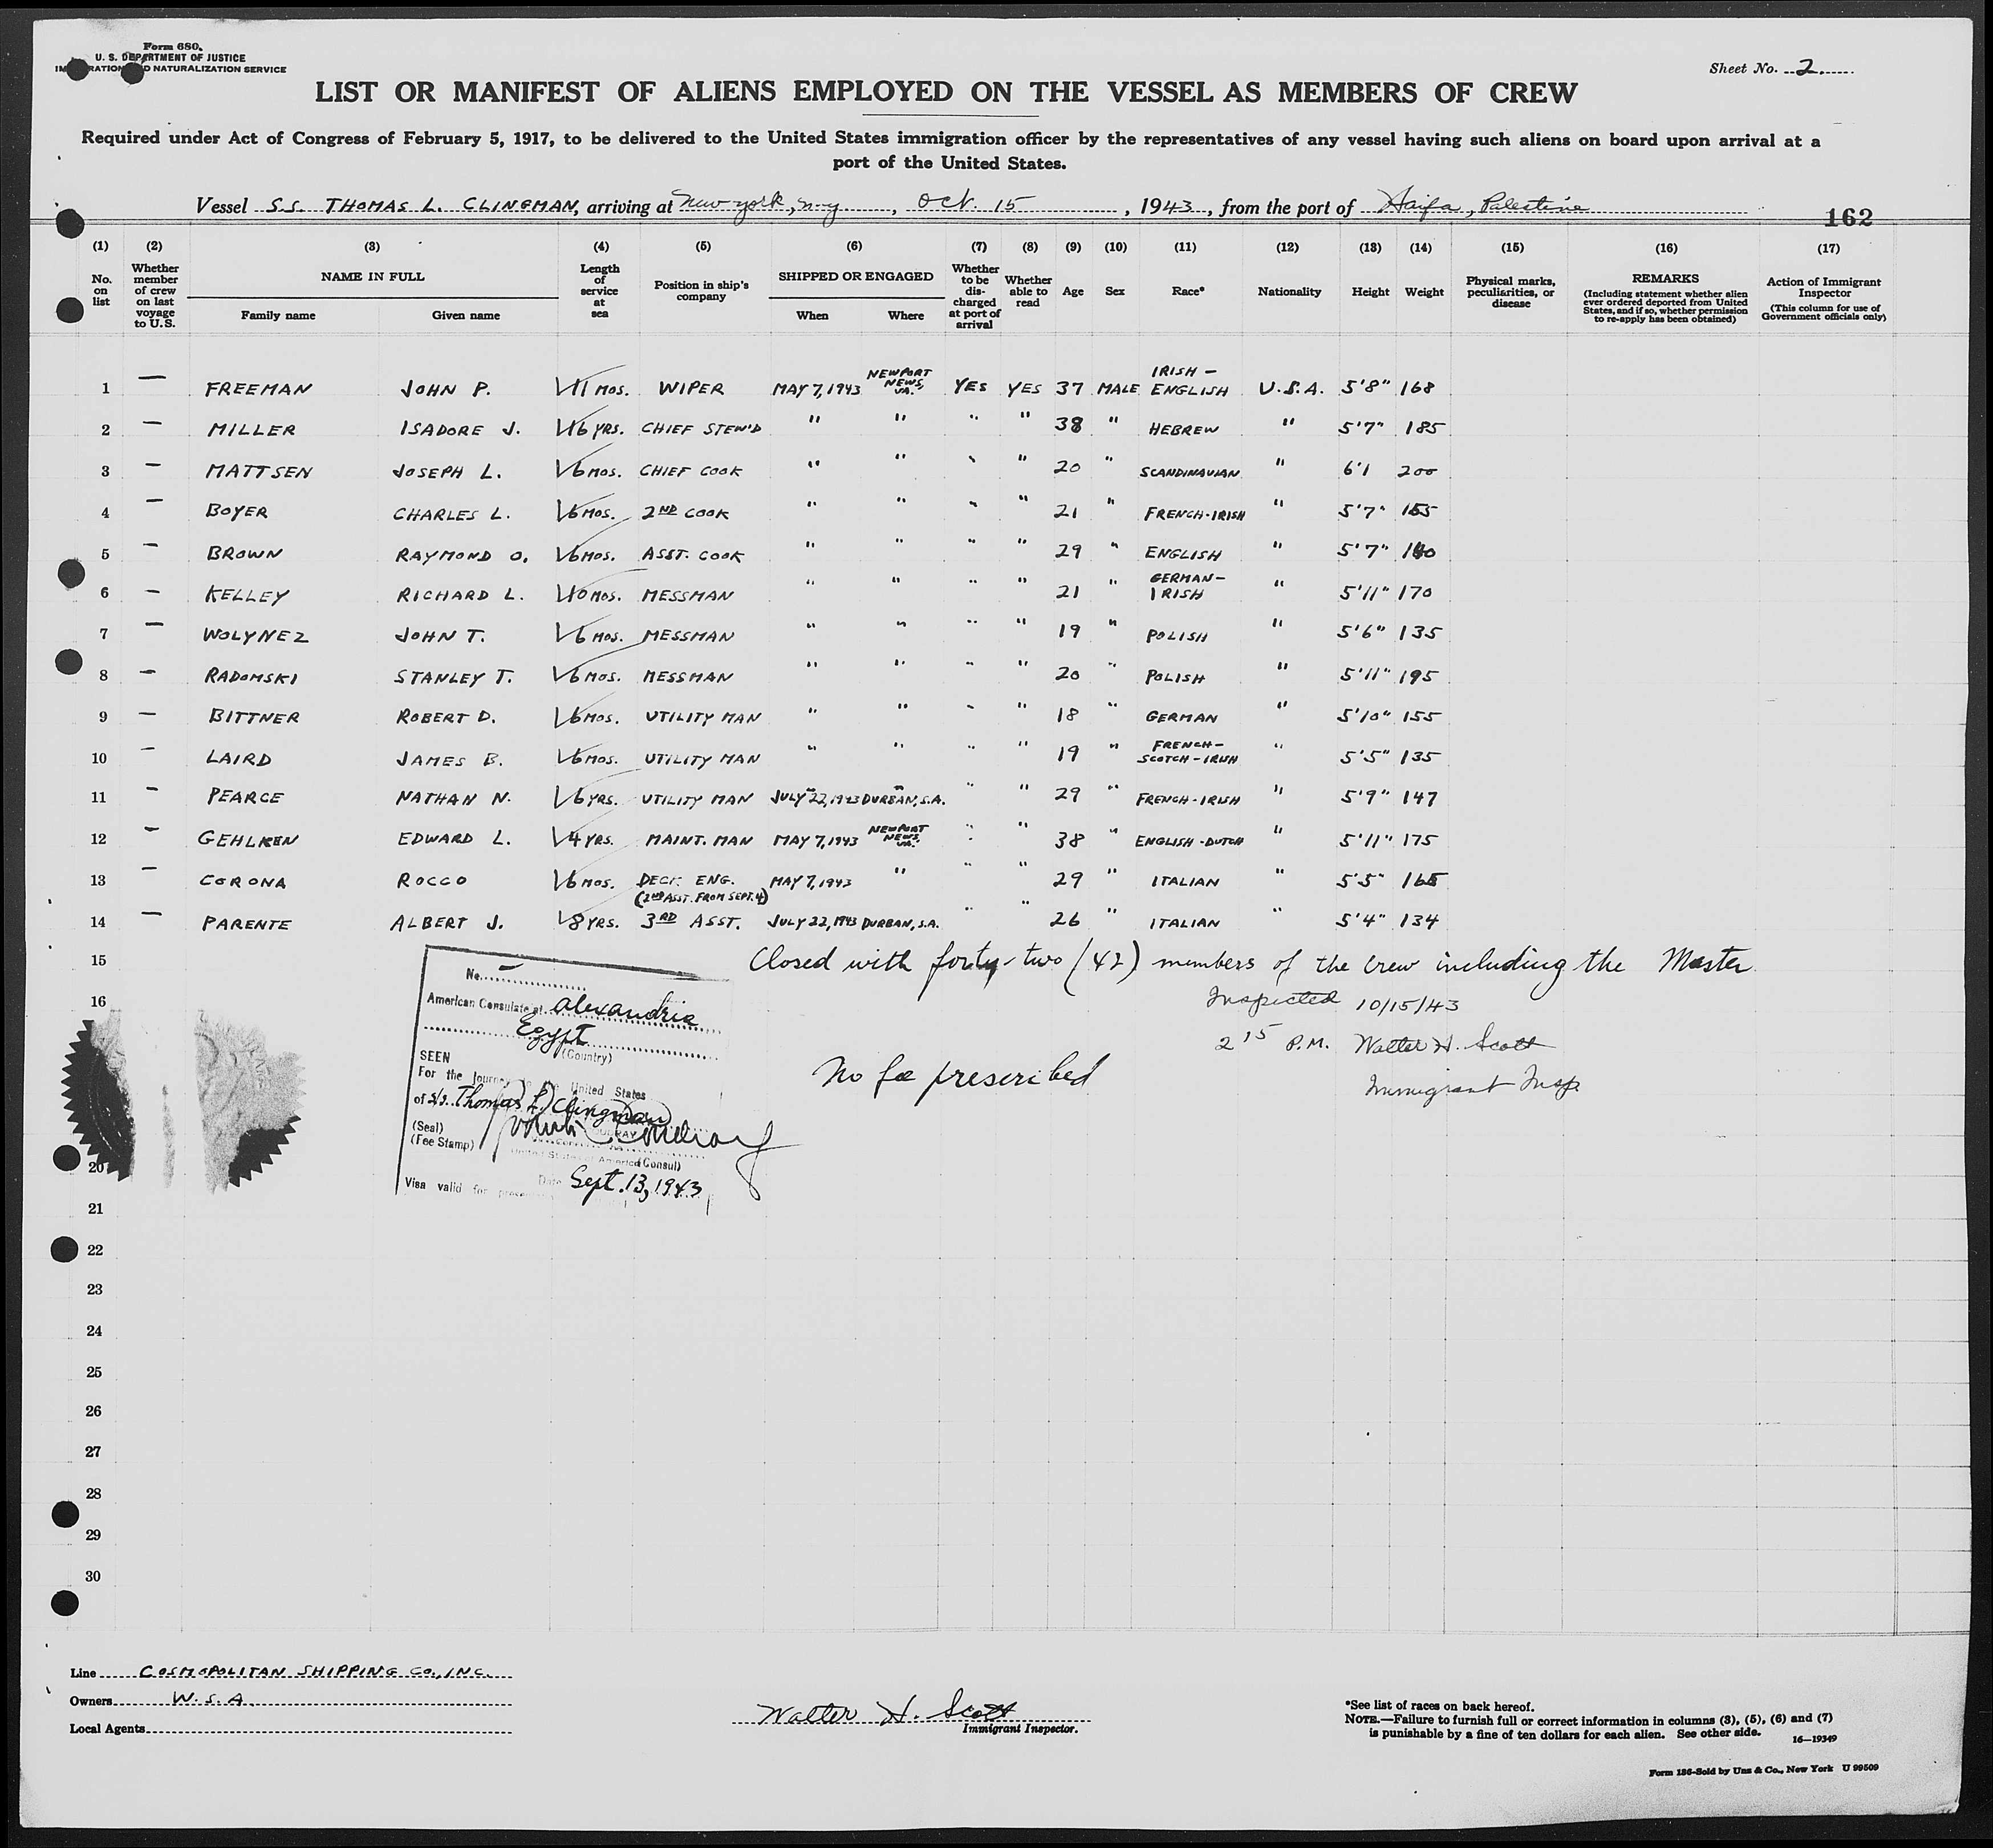 Form 680.
U. S. DEPARTMENT OF JUSTICE
IMMIGRATION AND NATURALIZATION SERVICE
Sheet No. 2.
LIST OR MANIFEST OF ALIENS EMPLOYED ON THE VESSEL AS MEMBERS OF CREW
Required under Act of Congress of February 5, 1917, to be delivered to the United States immigration officer by the representatives of any vessel having such aliens on board upon arrival at a
port of the United States.
Vessel S.S. THOMAS L. CLINGMAN, arriving at New York, N.Y., Oct. 15, 1943, from the port of Haifa, Palestine
162
(1) (2) (3) (4) (5) (6) (7) (8) (9) (10) (11) (12) (13) (14) (15) (16) (17)
No. on list
Whether member of crew on last voyage to U.S.
NAME IN FULL
Family name Given name
Length of service at sea
Position in ship's company
SHIPPED OR ENGAGED
When Where
Whether to be discharged at port of arrival
Whether able to read
Age
Sex
Race*
Nationality
Height
Weight
Physical marks, peculiarities, or disease
REMARKS
(Including statement whether alien ever ordered deported from United States, and if so, whether permission to re-apply has been obtained)
Action of Immigrant Inspector
(This column for use of Government officials only)
1 — FREEMAN JOHN P. 11 MOS. WIPER MAY 7, 1943 NEWPORT NEWS, VA. YES YES 37 MALE IRISH-ENGLISH U.S.A. 5'8" 168
2 — MILLER ISADORE J. 16 YRS. CHIEF STEW'D " " " " 38 " HEBREW " 5'7" 185
3 — MATTSEN JOSEPH L. 6 MOS. CHIEF COOK " " " " 20 " SCANDINAVIAN " 6'1 200
4 — BOYER CHARLES L. 6 MOS. 2ND COOK " " " " 21 " FRENCH-IRISH " 5'7"
5 — BROWN RAYMOND O. 6 MOS. ASST. COOK " " " " 29 " ENGLISH " 5'7"
6 — KELLEY RICHARD L. 10 MOS. MESSMAN " " " " 21 " GERMAN-IRISH " 5'11" 170
7 — WOLYNEZ JOHN T. 6 MOS. MESSMAN " " " " 19 " POLISH " 5'6" 135
8 — RADOMSKI STANLEY T. 6 MOS. MESSMAN " " " " 20 " POLISH " 5'11" 195
9 — BITTNER ROBERT D. 6 MOS. UTILITY MAN " " " " 18 " GERMAN " 5'10" 155
10 — LAIRD JAMES B. 6 MOS. UTILITY MAN " " " " 19 " FRENCH-SCOTCH-IRISH " 5'5" 135
11 — PEARCE NATHAN N. 6 YRS. UTILITY MAN JULY 22, 1943 DURBAN, S.A. " " 29 " FRENCH-IRISH " 5'9" 147
12 — GEHLKEN EDWARD L. 4 YRS. MAINT. MAN MAY 7, 1943 NEWPORT NEWS, VA. " " 38 " ENGLISH-DUTCH " 5'11" 175
13 — CORONA ROCCO 6 MOS. DECK ENG. MAY 7, 1943 " " " 29 " ITALIAN " 5'5" 165
(2ND ASST. FROM SEPT. 4)
14 — PARENTE ALBERT J. 8 YRS. 3RD ASST. JULY 22, 1943 DURBAN, S.A. " " 26 " ITALIAN " 5'4" 134
15 Closed with forty-two (42) members of the Crew including the Master
16 Inspected 10/15/43
2 15 P.M. Walter H. Scott
Immigrant Insp.
No fee prescribed
No. —
American Consulate at Alexandria
Egypt
(Country)
SEEN
For the Journey to the United States
of S/S. Thomas L. Clingman
(Seal)
(Fee Stamp)
United States of America (Consul)
Date Sept. 13, 1943
Visa valid for
20
21
22
23
24
25
26
27
28
29
30
Line COSMOPOLITAN SHIPPING CO., INC.
Owners W.S.A.
Local Agents
Walter H. Scott
Immigrant Inspector.
*See list of races on back hereof.
NOTE.—Failure to furnish full or correct information in columns (3), (5), (6) and (7)
is punishable by a fine of ten dollars for each alien. See other side.
16—19349
Form 186-Sold by Unz & Co., New York U 99509